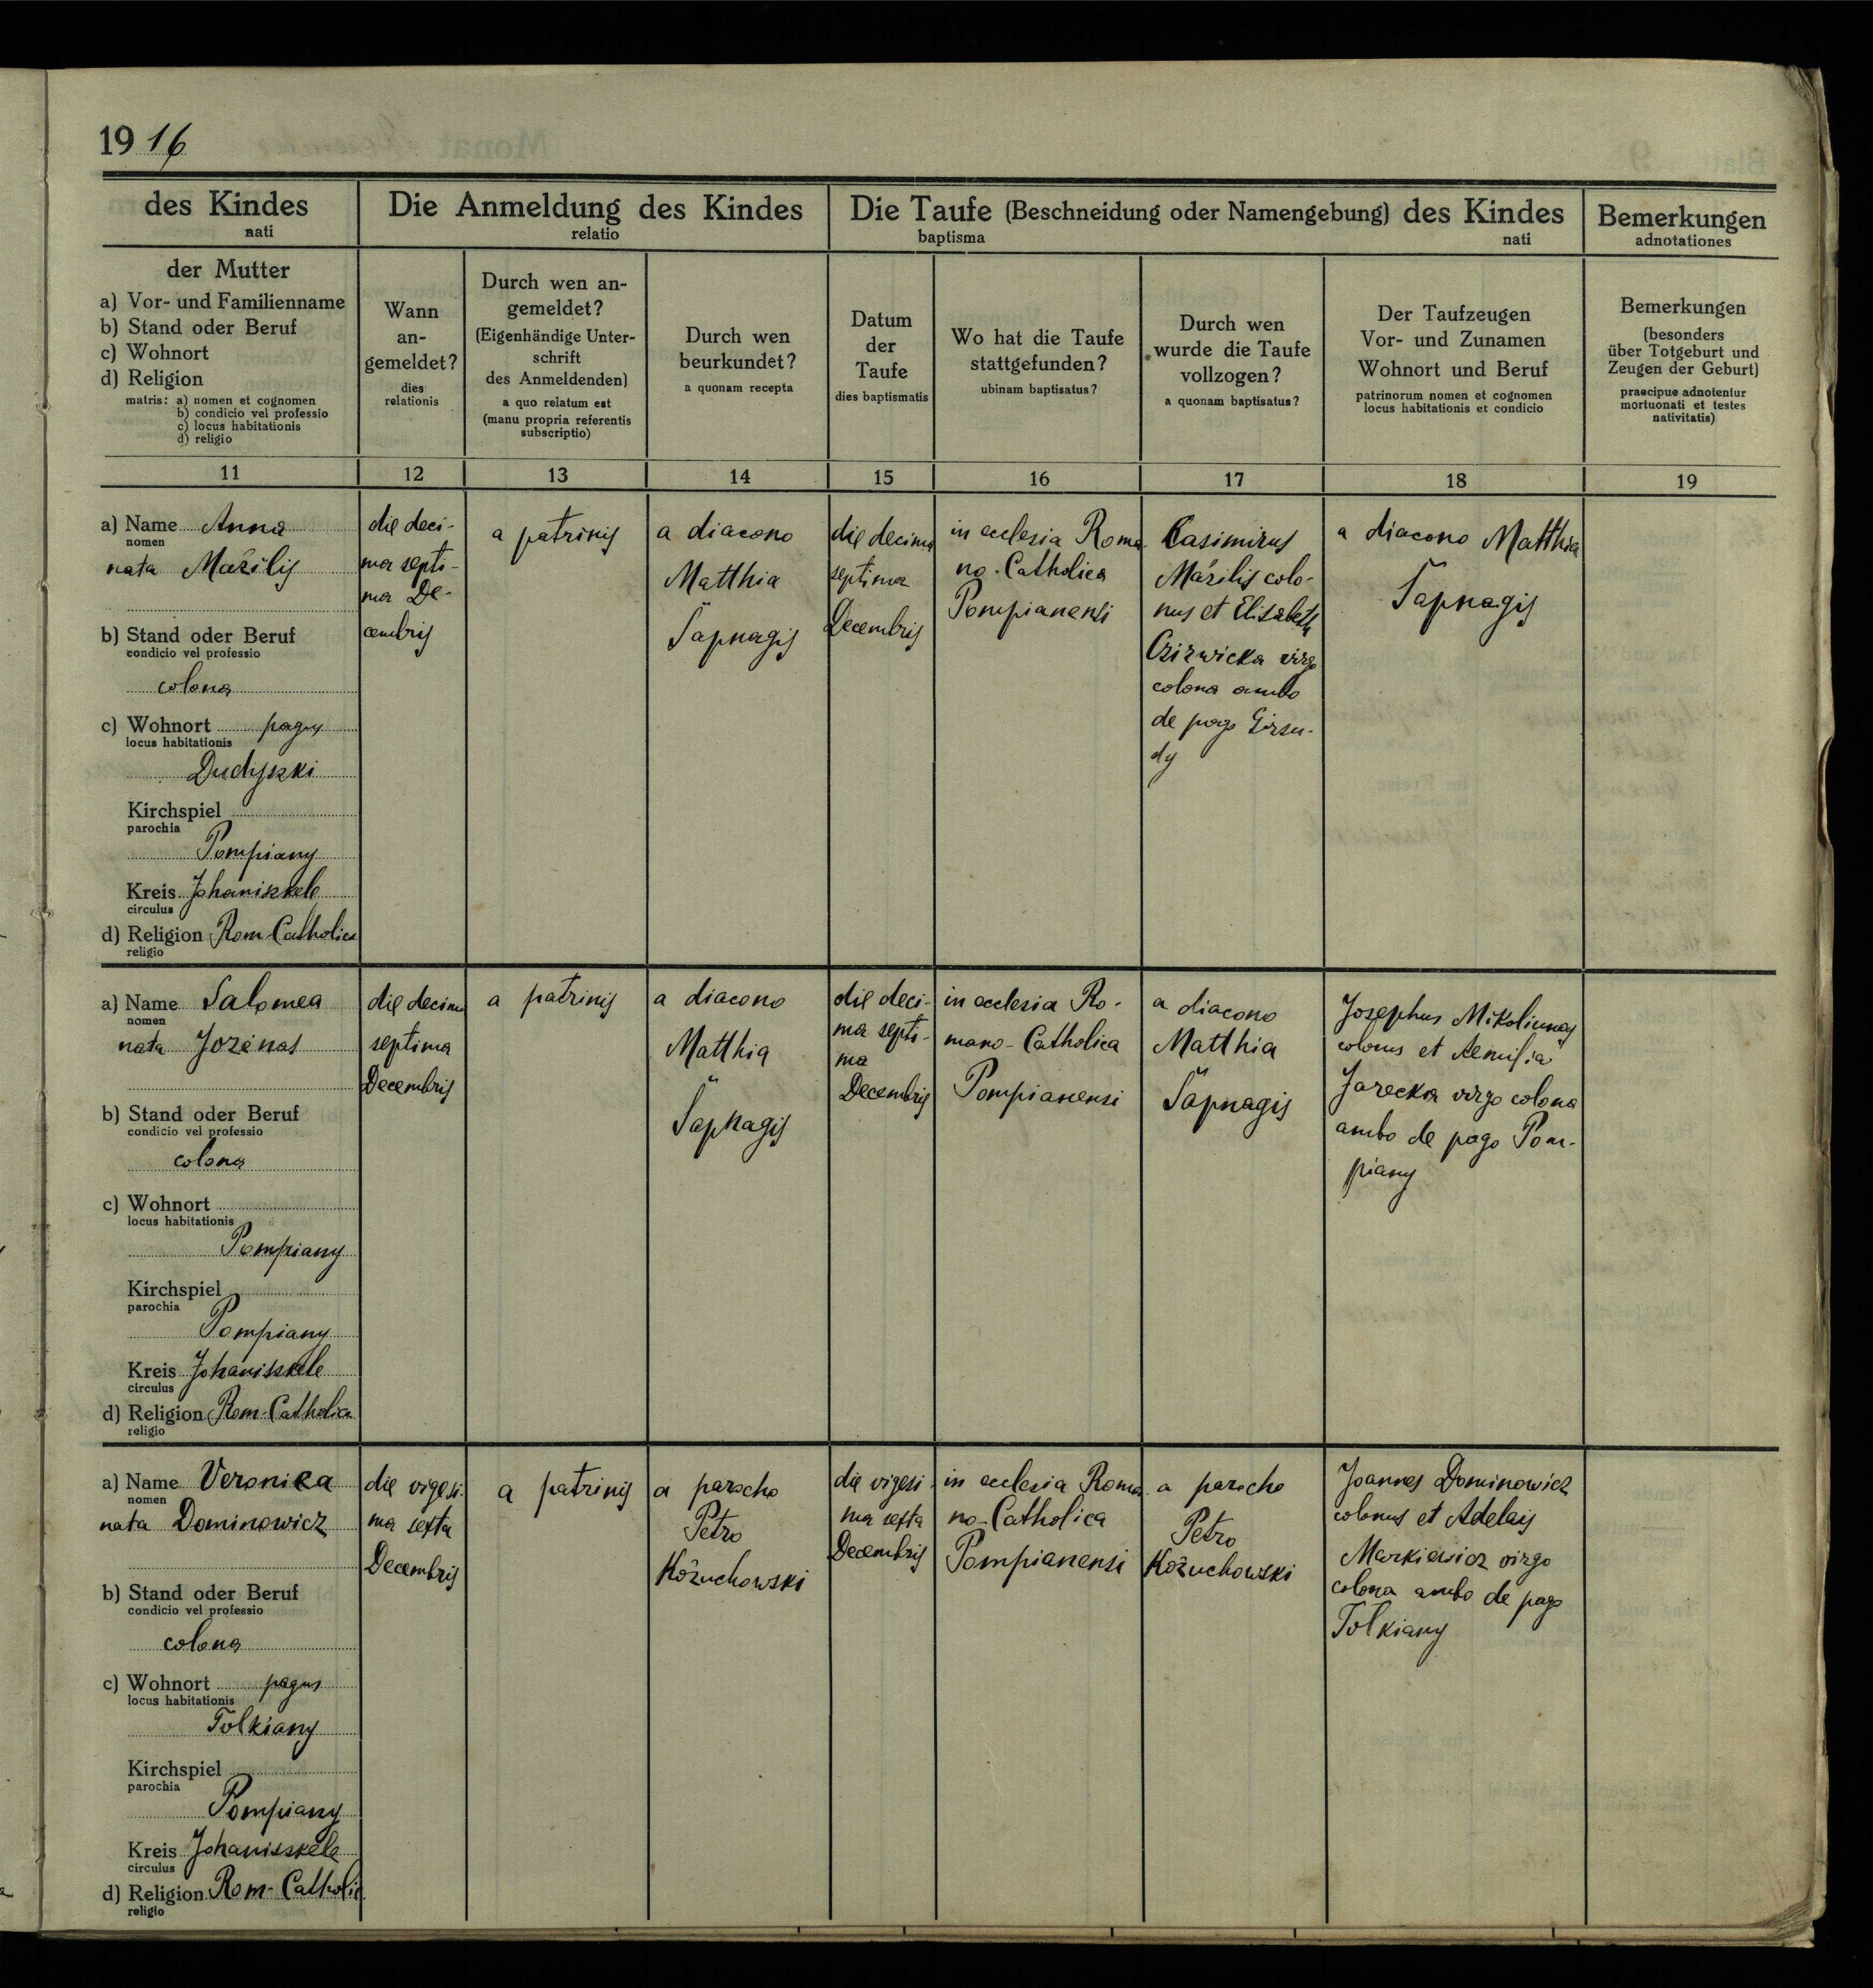 1916
des Kindes
nati
Die Anmeldung des Kindes
relatio
Die Taufe (Beschneidung oder Namengebung) des Kindes
baptisma
nati
Bemerkungen
adnotationes
der Mutter
a) Vor- und Familienname
b) Stand oder Beruf
c) Wohnort
d) Religion
matris: a) nomen et cognomen
b) condicio vel professio
c) locus habitationis
d) religio
Wann
an-
gemeldet?
dies
relationis
Durch wen an-
gemeldet?
(Eigenhändige Unter-
schrift
des Anmeldenden)
a quo relatum est
(manu propria referentis
subscriptio)
Durch wen
beurkundet?
a quonam recepta
Datum
der
Taufe
dies baptismatis
Wo hat die Taufe
stattgefunden?
ubinam baptisatus?
Durch wen
wurde die Taufe
vollzogen?
a quonam baptisatus?
Der Taufzeugen
Vor- und Zunamen
Wohnort und Beruf
patrinorum nomen et cognomen
locus habitationis et condicio
Bemerkungen
(besonders
über Totgeburt und
Zeugen der Geburt)
praecipue adnotentur
mortuonati et testes
nativitatis)
11 12 13 14 15 16 17 18 19
a) Name Anna
nomen
nata Mažilis
b) Stand oder Beruf
condicio vel professio
colona
c) Wohnort pagus
locus habitationis
Dudyszki
Kirchspiel
parochia
Pompiany
Kreis Johaniszkele
circulus
d) Religion Rom Catholica
religio
die deci-
ma septi-
ma De-
cembris
a patrinis
a diacono
Matthia
Šapnagis
die decima
septima
Decembris
in ecclesia Roma
no-Catholica
Pompianensi
Casimirus
Mažilis colo-
nus et Elisabeth
Czirwicka virgo
colona ambo
de pago Girsu-
dy
a diacono Matthia
Šapnagis
a) Name Salomea
nomen
nata Jozėnas
b) Stand oder Beruf
condicio vel professio
colona
c) Wohnort
locus habitationis
Pompiany
Kirchspiel
parochia
Pompiany
Kreis Johaniszkele
circulus
d) Religion Rom-Catholica
religio
die decima
septima
Decembris
a patrinis
a diacono
Matthia
Šapnagis
die deci-
ma septi-
ma
Decembris
in ecclesia Ro-
mano-Catholica
Pompianensi
a diacono
Matthia
Šapnagis
Josephus Mikoliunas
colonus et Aemilia
Jarecka virgo colona
ambo de pago Pom-
piany
a) Name Veronica
nomen
nata Dominowicz
b) Stand oder Beruf
condicio vel professio
colona
c) Wohnort pagus
locus habitationis
Tolkiany
Kirchspiel
parochia
Pompiany
Kreis Johaniszkele
circulus
d) Religion Rom-Catholic
religio
die vigesi-
ma sexta
Decembris
a patrinis
a parocho
Petro
Kožuchowski
die vigesi-
ma sexta
Decembris
in ecclesia Roma
no-Catholica
Pompianensi
a parocho
Petro
Kožuchowski
Joannes Dominowicz
colonus et Adelais
Markiewicz virgo
colona ambo de pago
Tolkiany